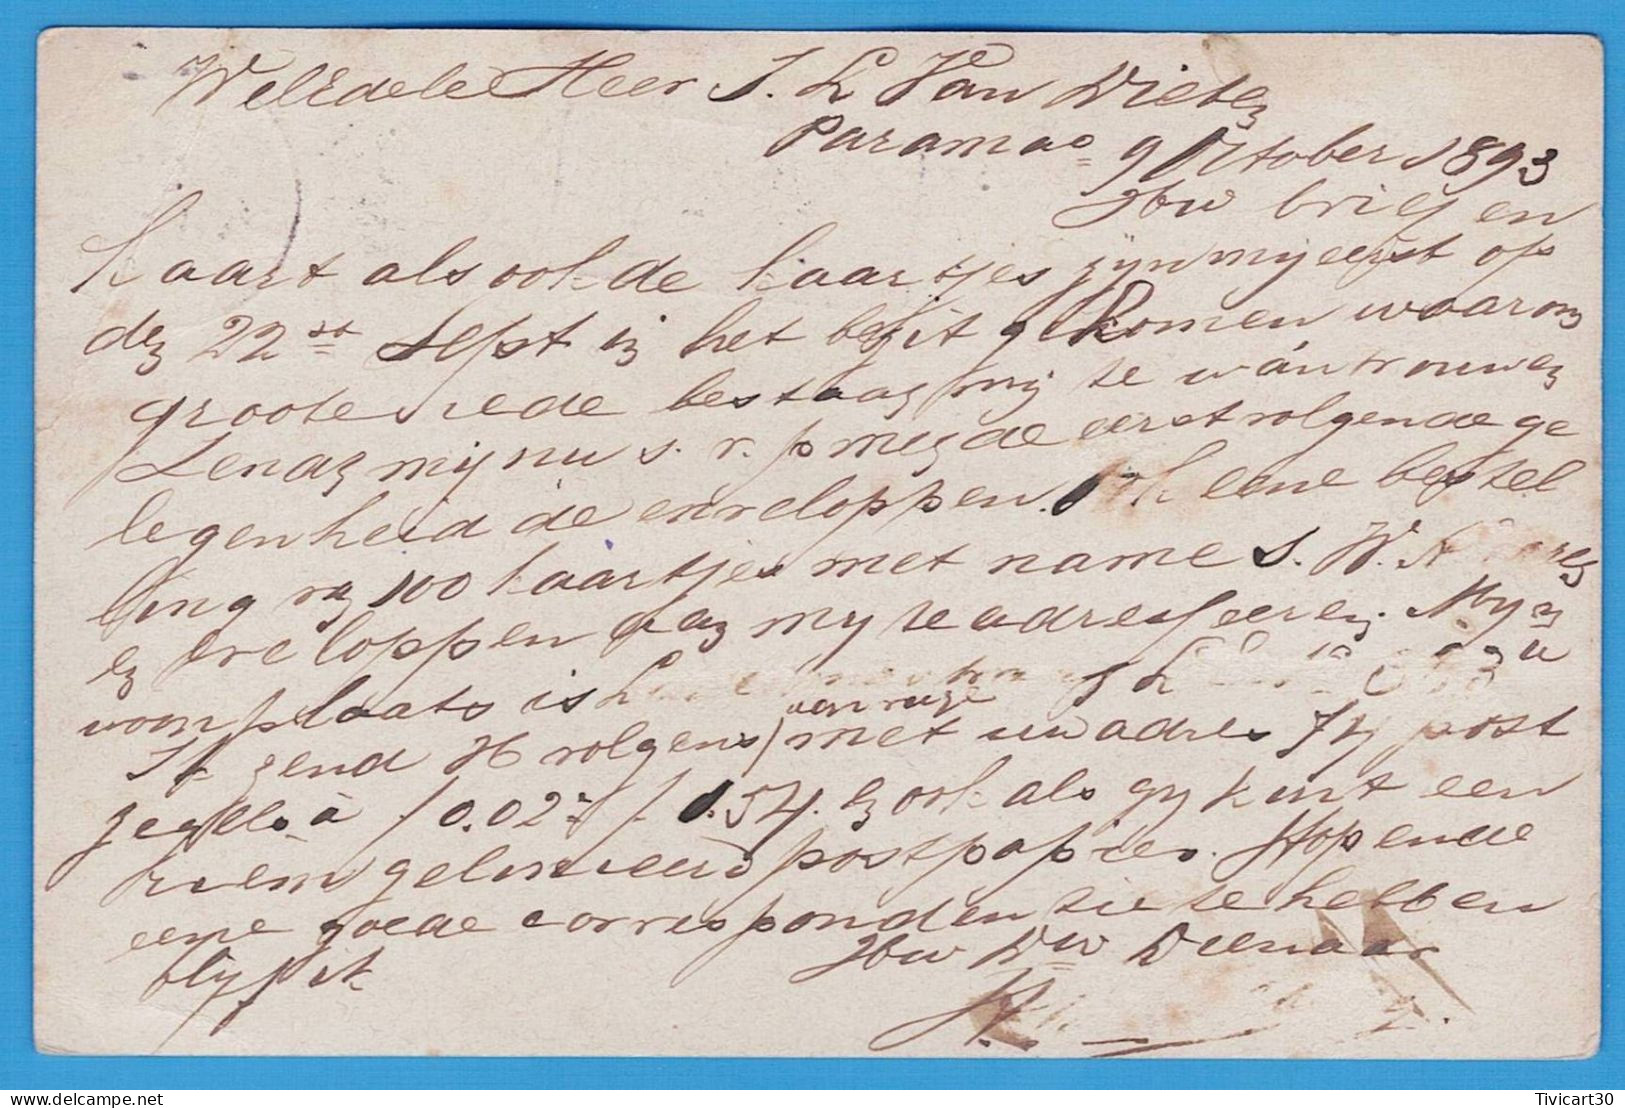 WelEdele Heer J. L Van Dieten
Paramao 9 October 1893
Uw brief en
kaart als ook de kaartjes zijn mij eerst op
den 22st Sept in het bezit gekomen waarom
groote rede bestaan mij te wantrouwen
Zend mij nu s. v. p met de eerstvolgende ge
legenheid de enveloppen. Ook eene bestel
ling van 100 kaartjes met name S. W.
en enveloppen aan mij te adresseeren. Mijn
woonplaats is
aanvrage
Ik zend U volgens met uw adres post
zegels à f 0.02 f 1.54. en ook als gij kunt een
riem gelinieerd postpapier. Hopende
eene goede correspondentie te hebben
blijf ik Uw Dw Dienaar
Tivicart30